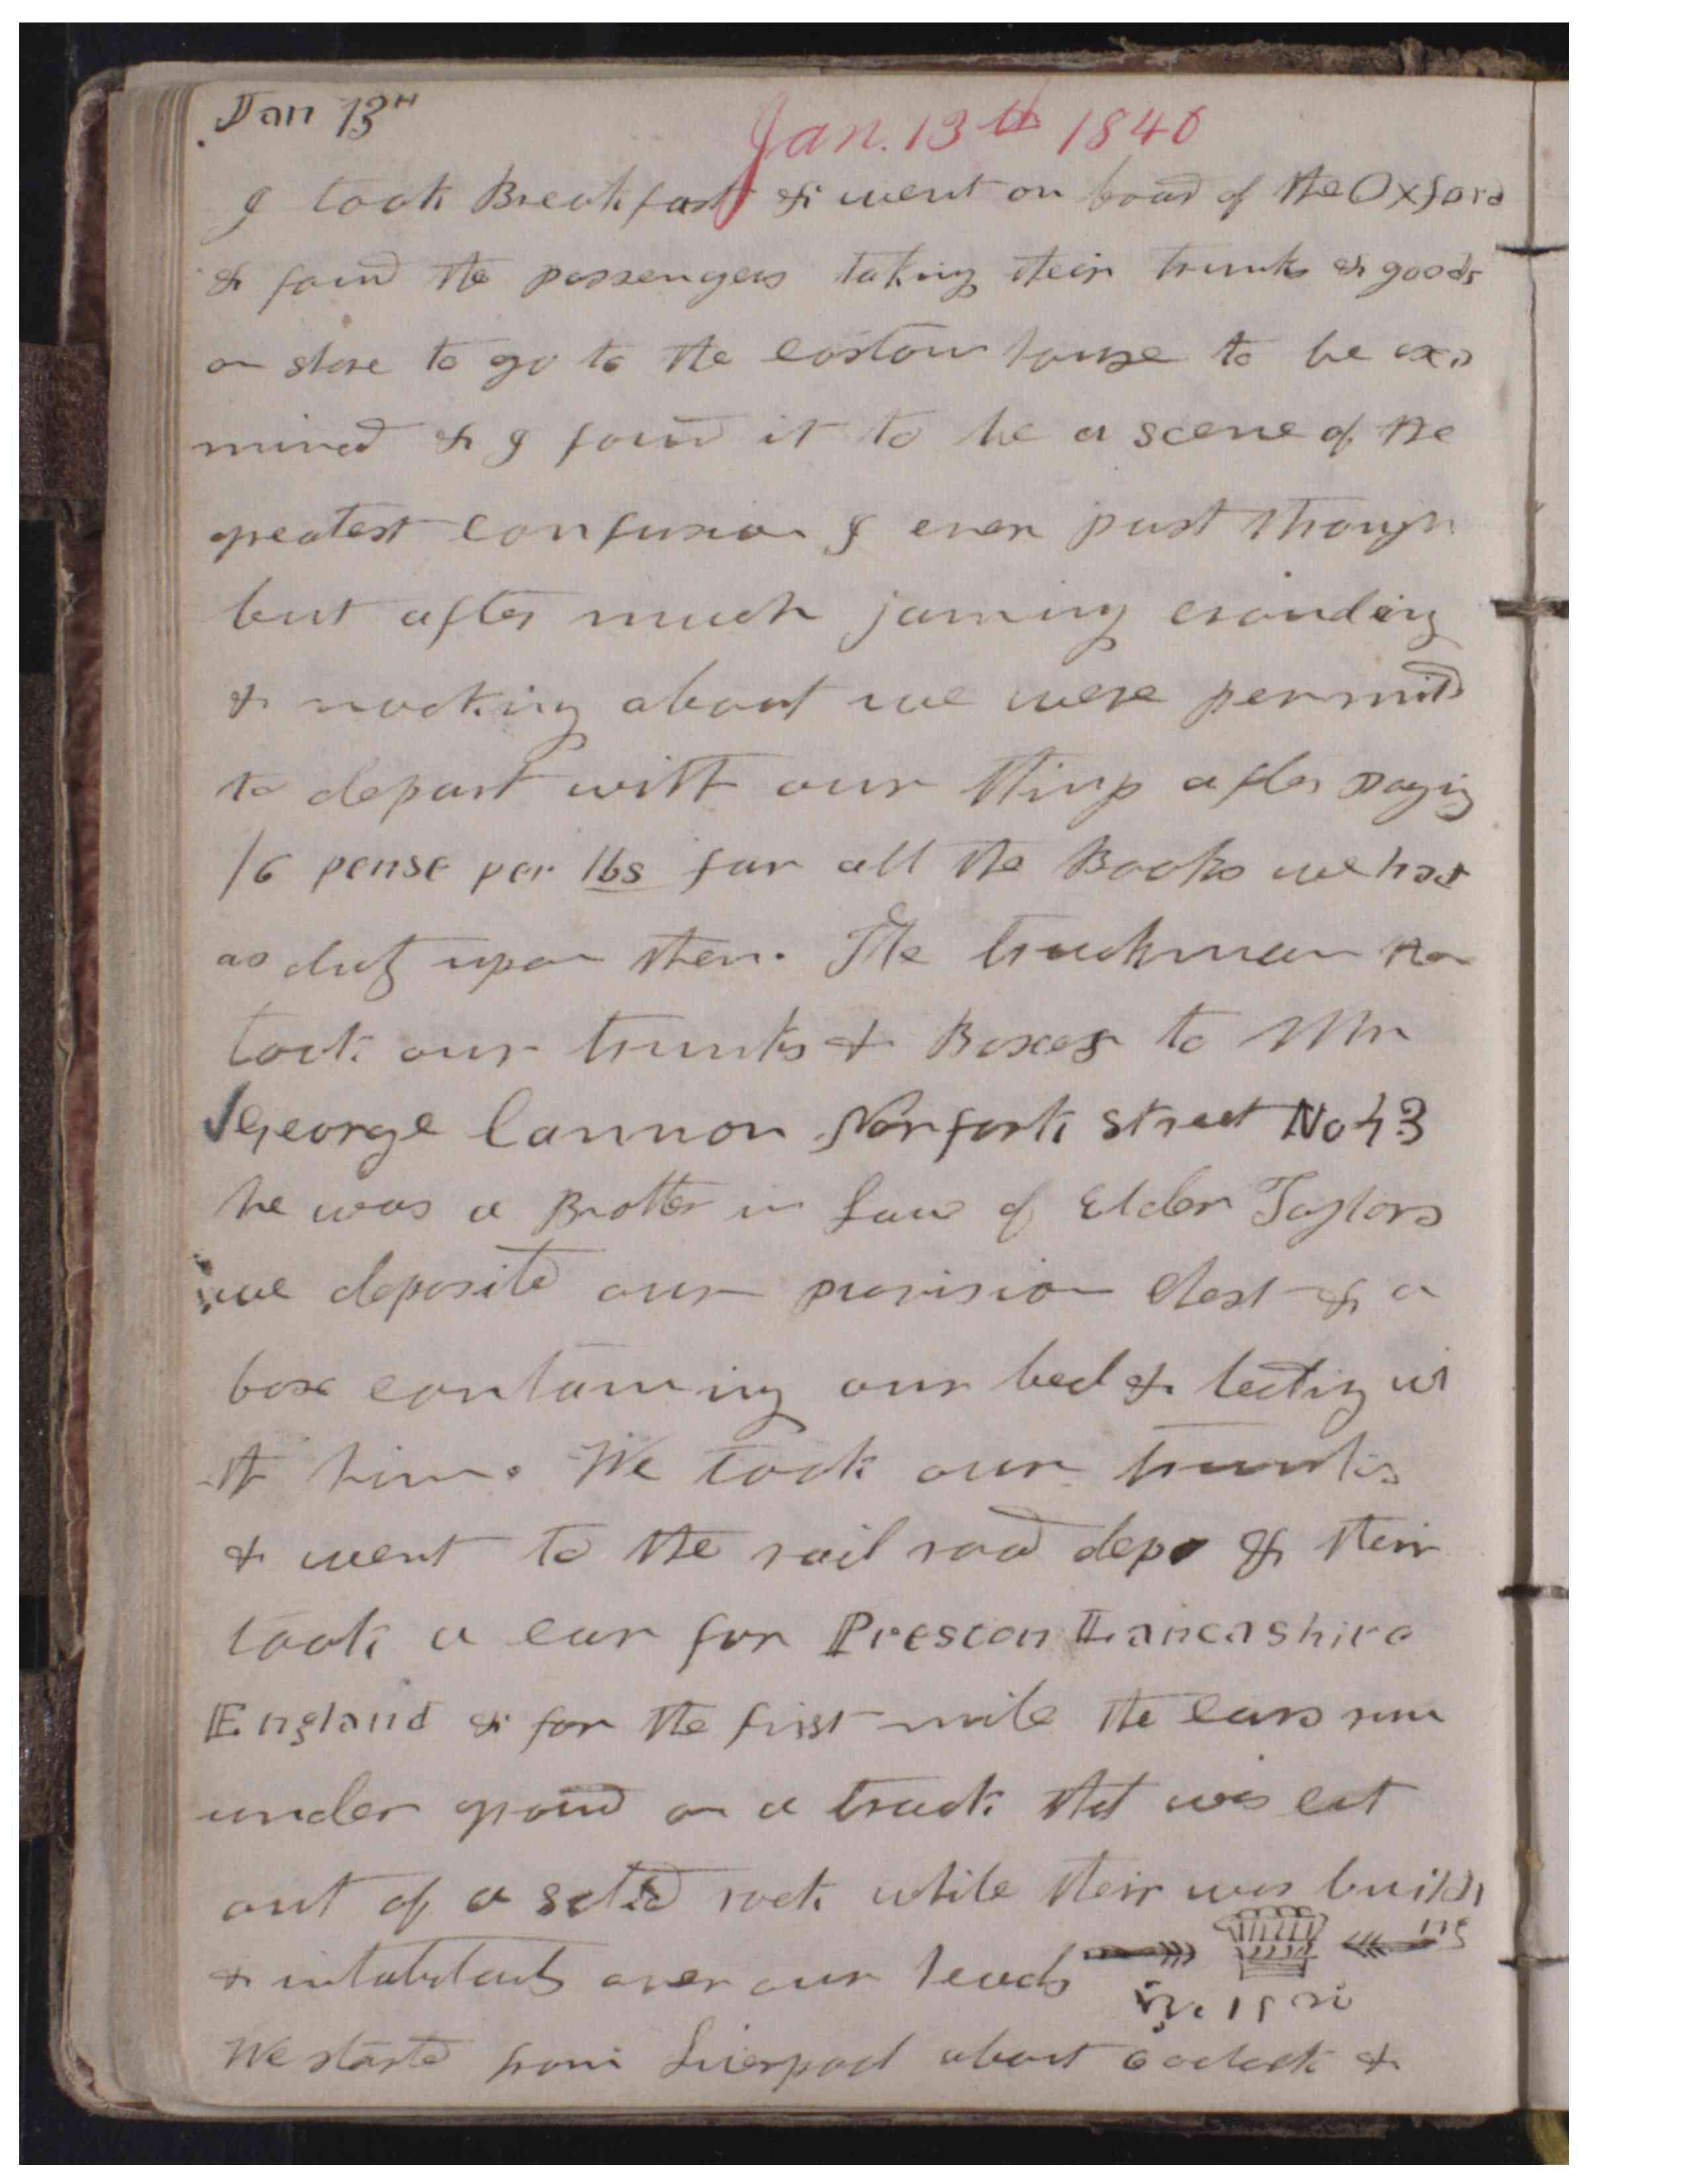 Jan 13th
Jan. 13th 1840
I took Breakfast & went on board of the Oxford
& found the passengers taking their trunks & goods
on shore to go to the costom house to be exa
mined & I found it to be a scene of the
greatest confusion I ever past through
but after much jaming crouding
& knocking about we were permitd
to depart with our things after paying
/6 pense per lbs for all the Books we had
as duty upon them. The truckman then
took our trunks & Boxes to Mr
George Cannon Norfork Street No 43
he was a Brother in Law of Elder Taylors
we deposited our provision chest & a
box containing our bed & beding wi
th him. We took our trunks
& went to the rail road depo & their
took a car for Preston Lancashire
England & for the first mile the cars run
under ground on a track that was cut
out of a solid rock while their was build
ing
& inhabitants over our heads
We started from Liverpool about 6 oclock &